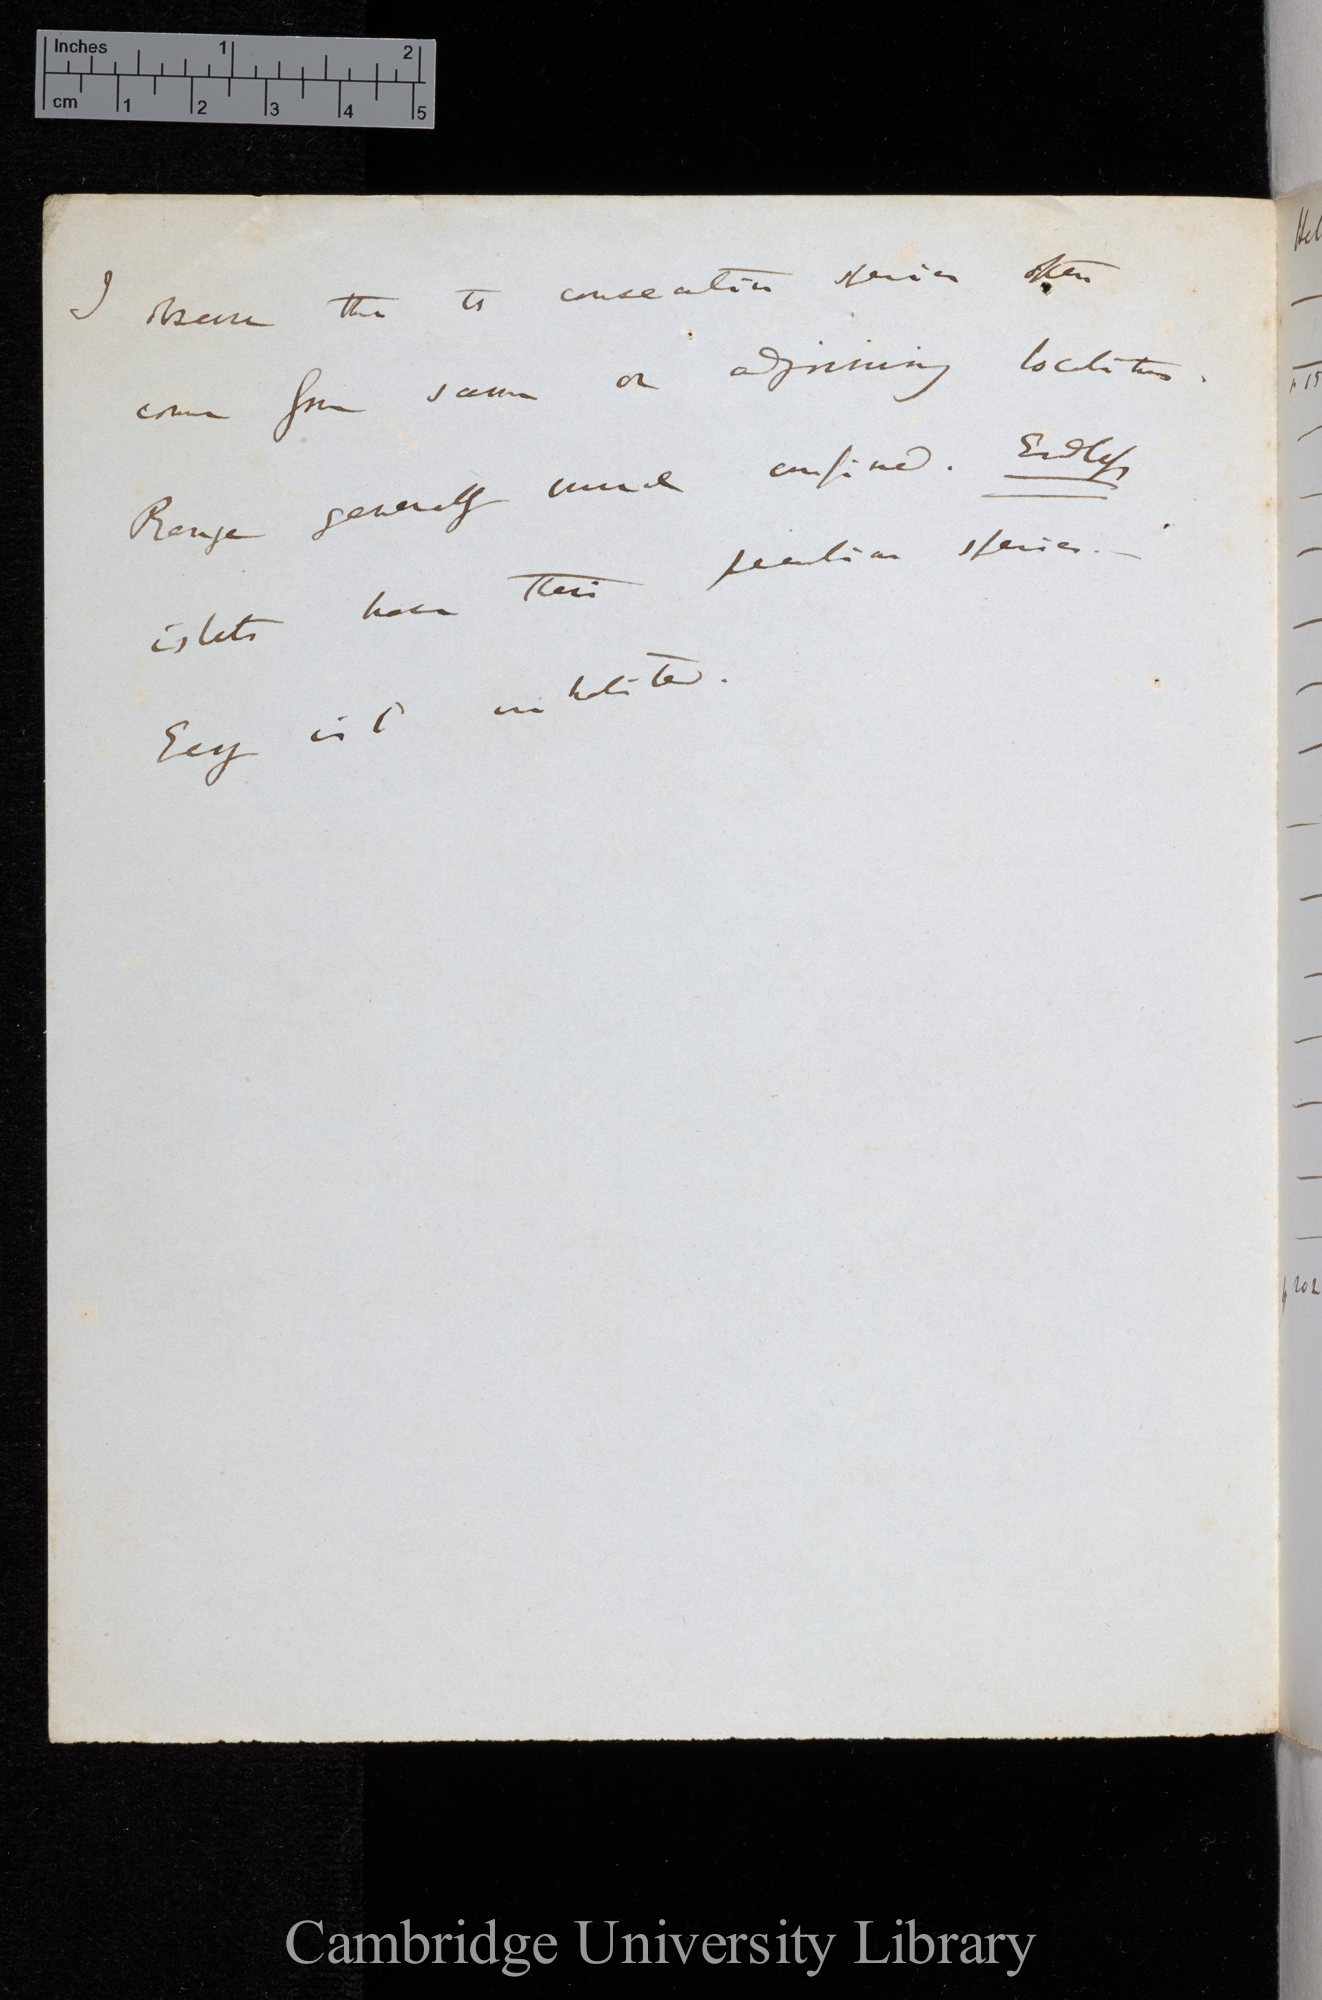 Inches 1 2
cm 1 2 3 4 5
I observe the to consecutive species often
come from same or adjoining localities.
Range generally much confined.
islets have their peculiar species.—
Every isld inhabited.
Hel
202
Cambridge University Library